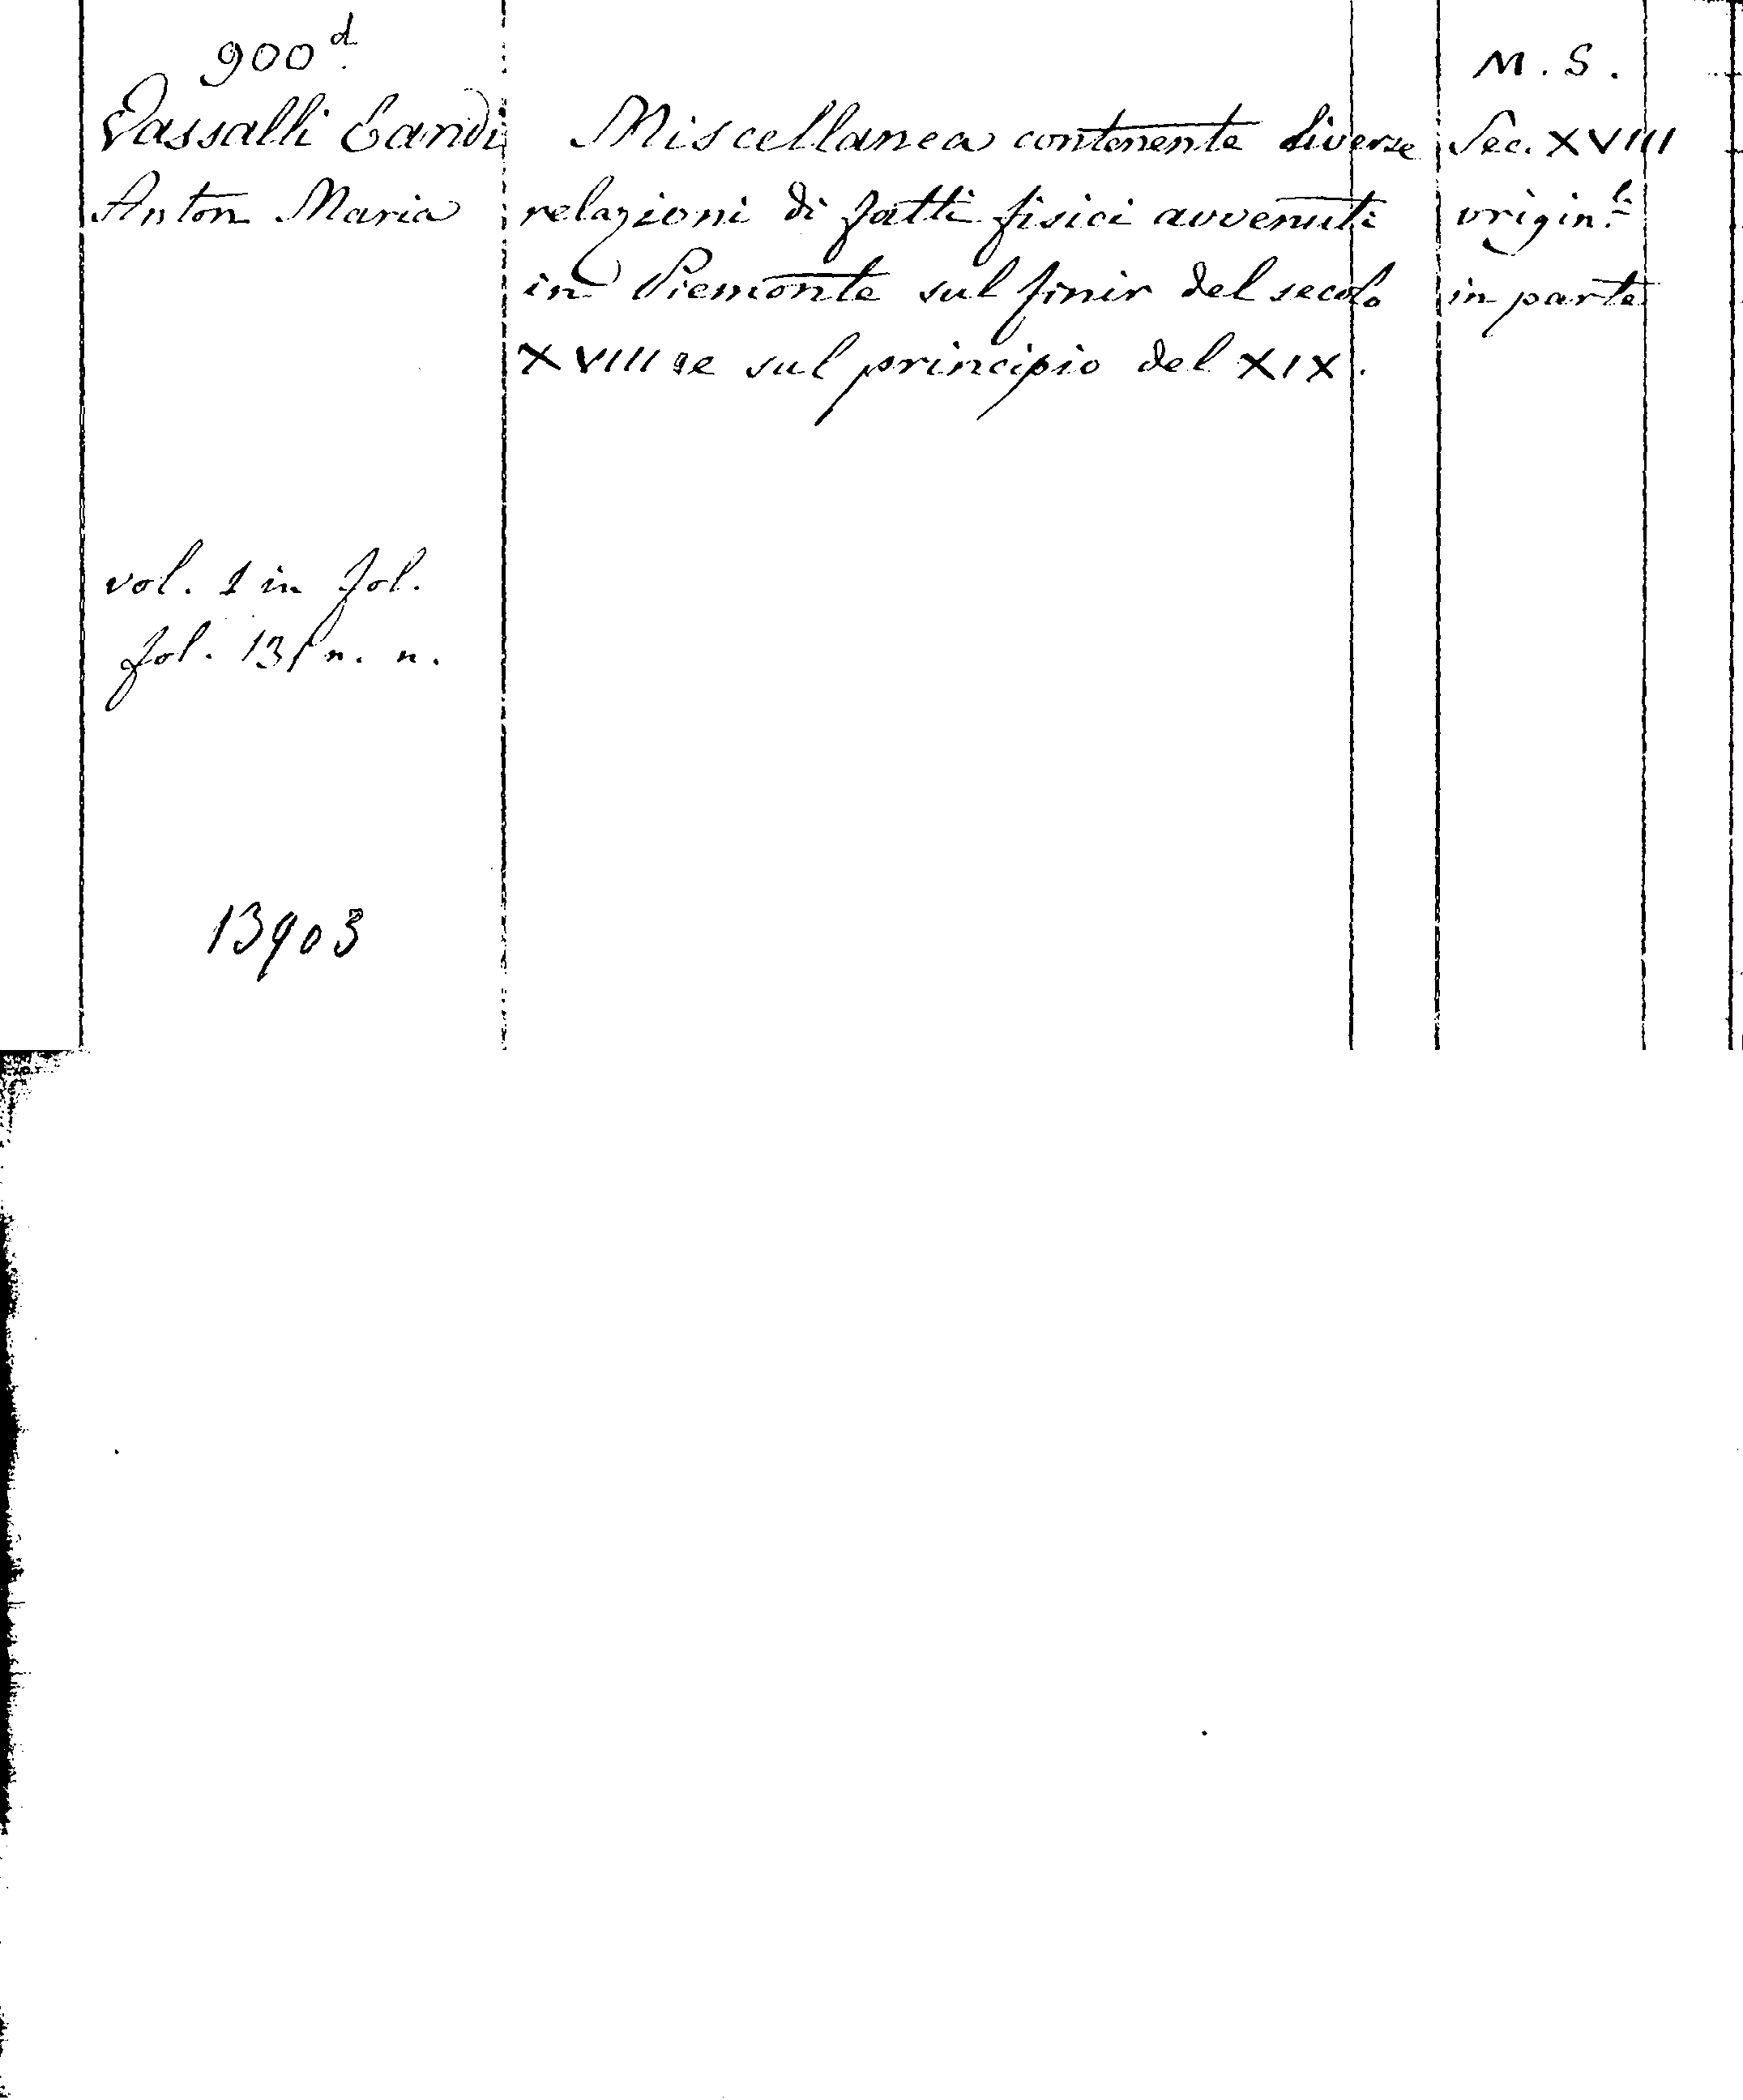 900 d.
Vassalli Eandi
Anton Maria
vol. 1 in fol.
fol. 131 n. n.
13903
Miscellanea contenente diverse
relazioni di fatti fisici avvenuti
in Piemonte sul finir del secolo
XVIII e sul principio del XIX.
M. S.
Sec. XVIII
origin.li
in parte